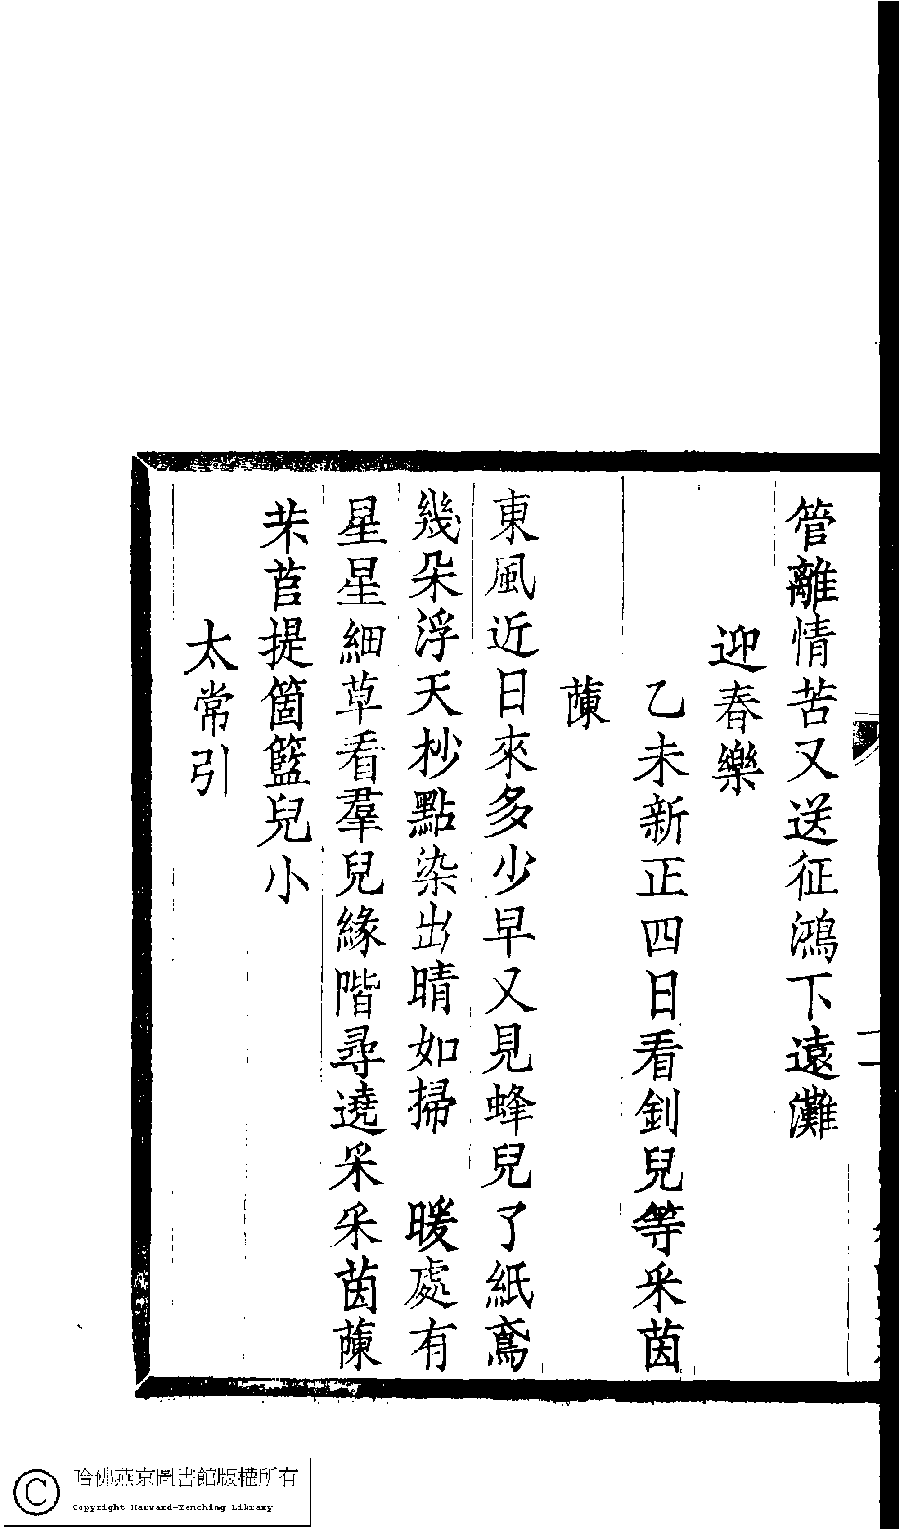 管離情苦又送征鴻下遠灘
迎春樂
乙未新正四日看釗兒等采茵
蔯
東風近日來多少早又見蜂兒了紙鳶
幾朵浮天杪點染出晴如掃　暖處有
星星細草看羣兒緣階尋遶采采茵蔯
芣苢提箇籃兒小
太常引
哈佛燕京圖書館版權所有
Copyright Harvard-Yenching Library